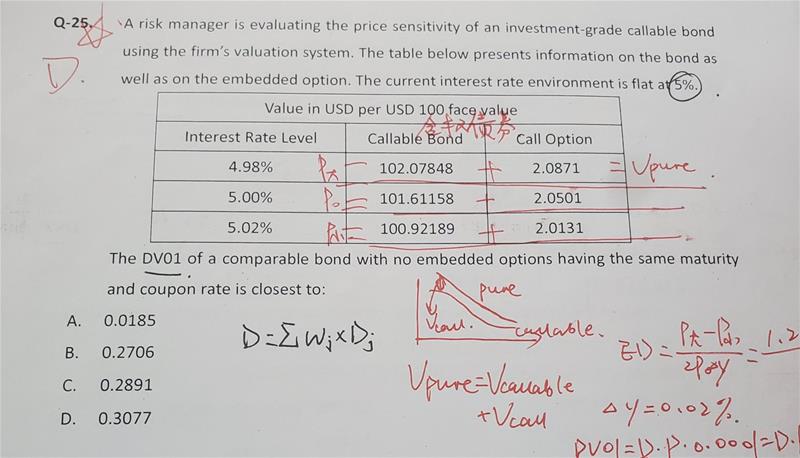 Q-25. A risk manager is evaluating the price sensitivity of an investment-grade callable bond
using the firm's valuation system. The table below presents information on the bond as
D. well as on the embedded option. The current interest rate environment is flat at 5%.
Value in USD per USD 100 face value
含权债券
Interest Rate Level Callable Bond Call Option
4.98% P大 = 102.07848 + 2.0871 = Vpure.
5.00% P0 = 101.61158 + 2.0501
5.02% = 100.92189 + 2.0131
The DV01 of a comparable bond with no embedded options having the same maturity
and coupon rate is closest to:
pure
Vcall. callable.
A. 0.0185
D=ΣWj×Dj
B. 0.2706
C. 0.2891
Vpure=Vcallable
+Vcall
Δy=0.02%.
D. 0.3077
DV01=D.P.0.0001=D.